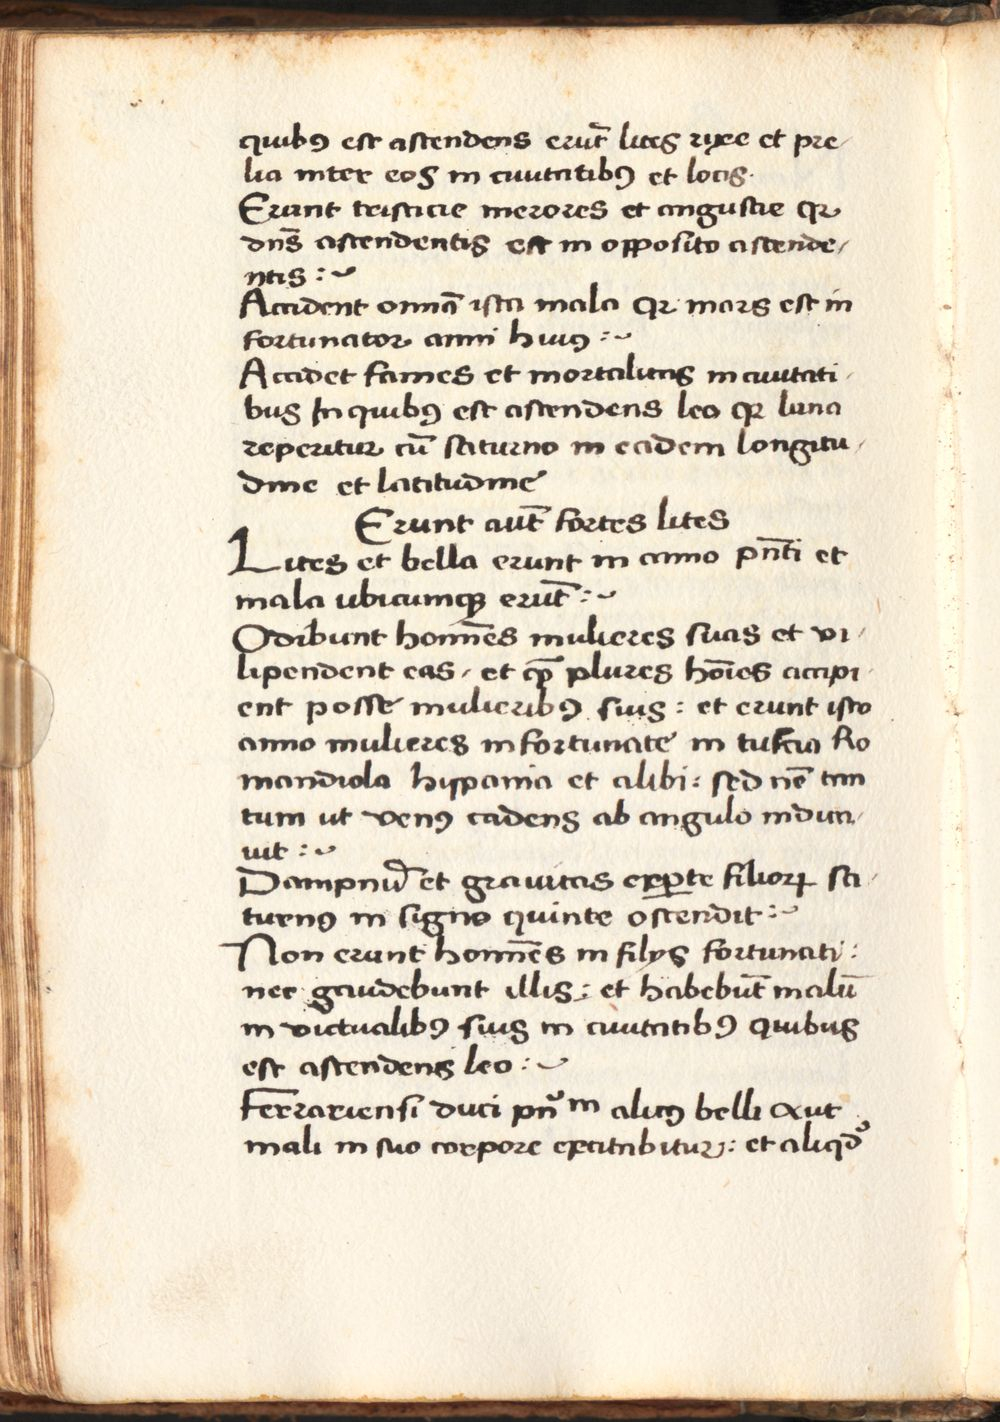 quibꝰ est astendens erūt lites rixe et pre/
lia inter eos in ciuitatibꝰ et locis.
Erunt tristicie merores et angustie qꝛ
dn̄s astendentis est in opposito astende/
ntis :~
Accident omnā ista mala qꝛ mars est in
fortunator anni huiꝰ :~
Accidet fames et mortalitas in ciuitati/
bus In quibꝰ est astendens leo qꝛ luna
reperitur cū saturno in eadem longitu/
dine et latitudine
Erunt aūt fortes lites
Lites et bella erunt in anno pn̄ti et
mala ubicumqꝫ erūt :~
Odibunt homīes mulieres suas et vi/
lipendent eas / et qꝫ plures hōies accipi/
ent posse mulieribꝰ suis : et erunt isto
anno mulieres infortunate in tuscia Ro
mandiola hispania et alibi : sed nē tan
tum ut venꝰ cadens ab angulo indica/
uit :~
Dampnū et grauitas exꝑte filioꝝ sa/
turnꝰ in signo quinte ostendit :~
Non erunt homīes in filijs fortunati :
nec gaudebunt illis : et habebūt malū
in victualibꝰ suis in ciuitatibꝰ quibus
est astendens leo :~
Ferrariensi duci in alicꝰ belli aut
mali in suo corpore excitabitur : et aliqdͦ